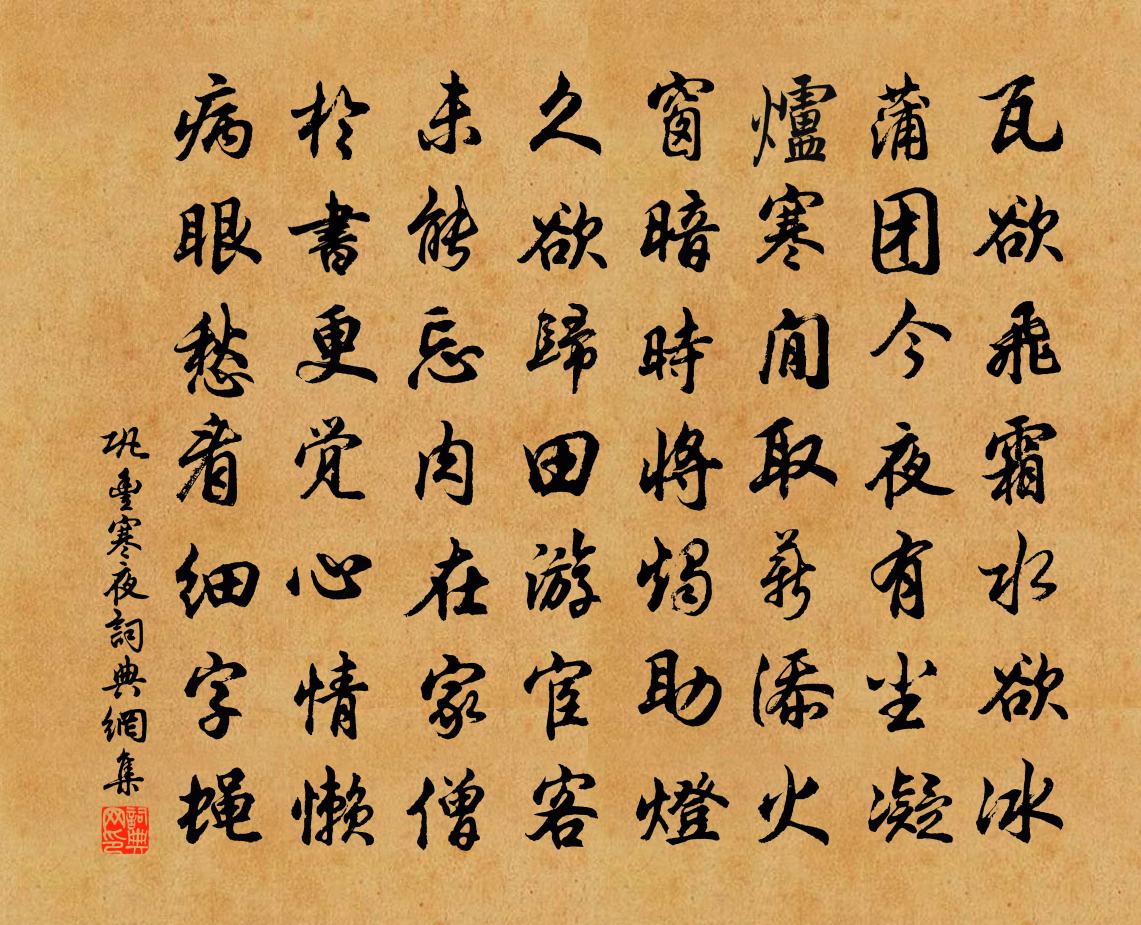 瓦欲飛霜水欲冰
蒲团今夜有尘凝
爐寒閒取薪添火
窗暗時將燭助燈
久欲歸田游宦客
未能忘肉在家僧
於書更觉心情懒
病眼愁看细字蝇
巩豊寒夜詞典網集
詞典网印